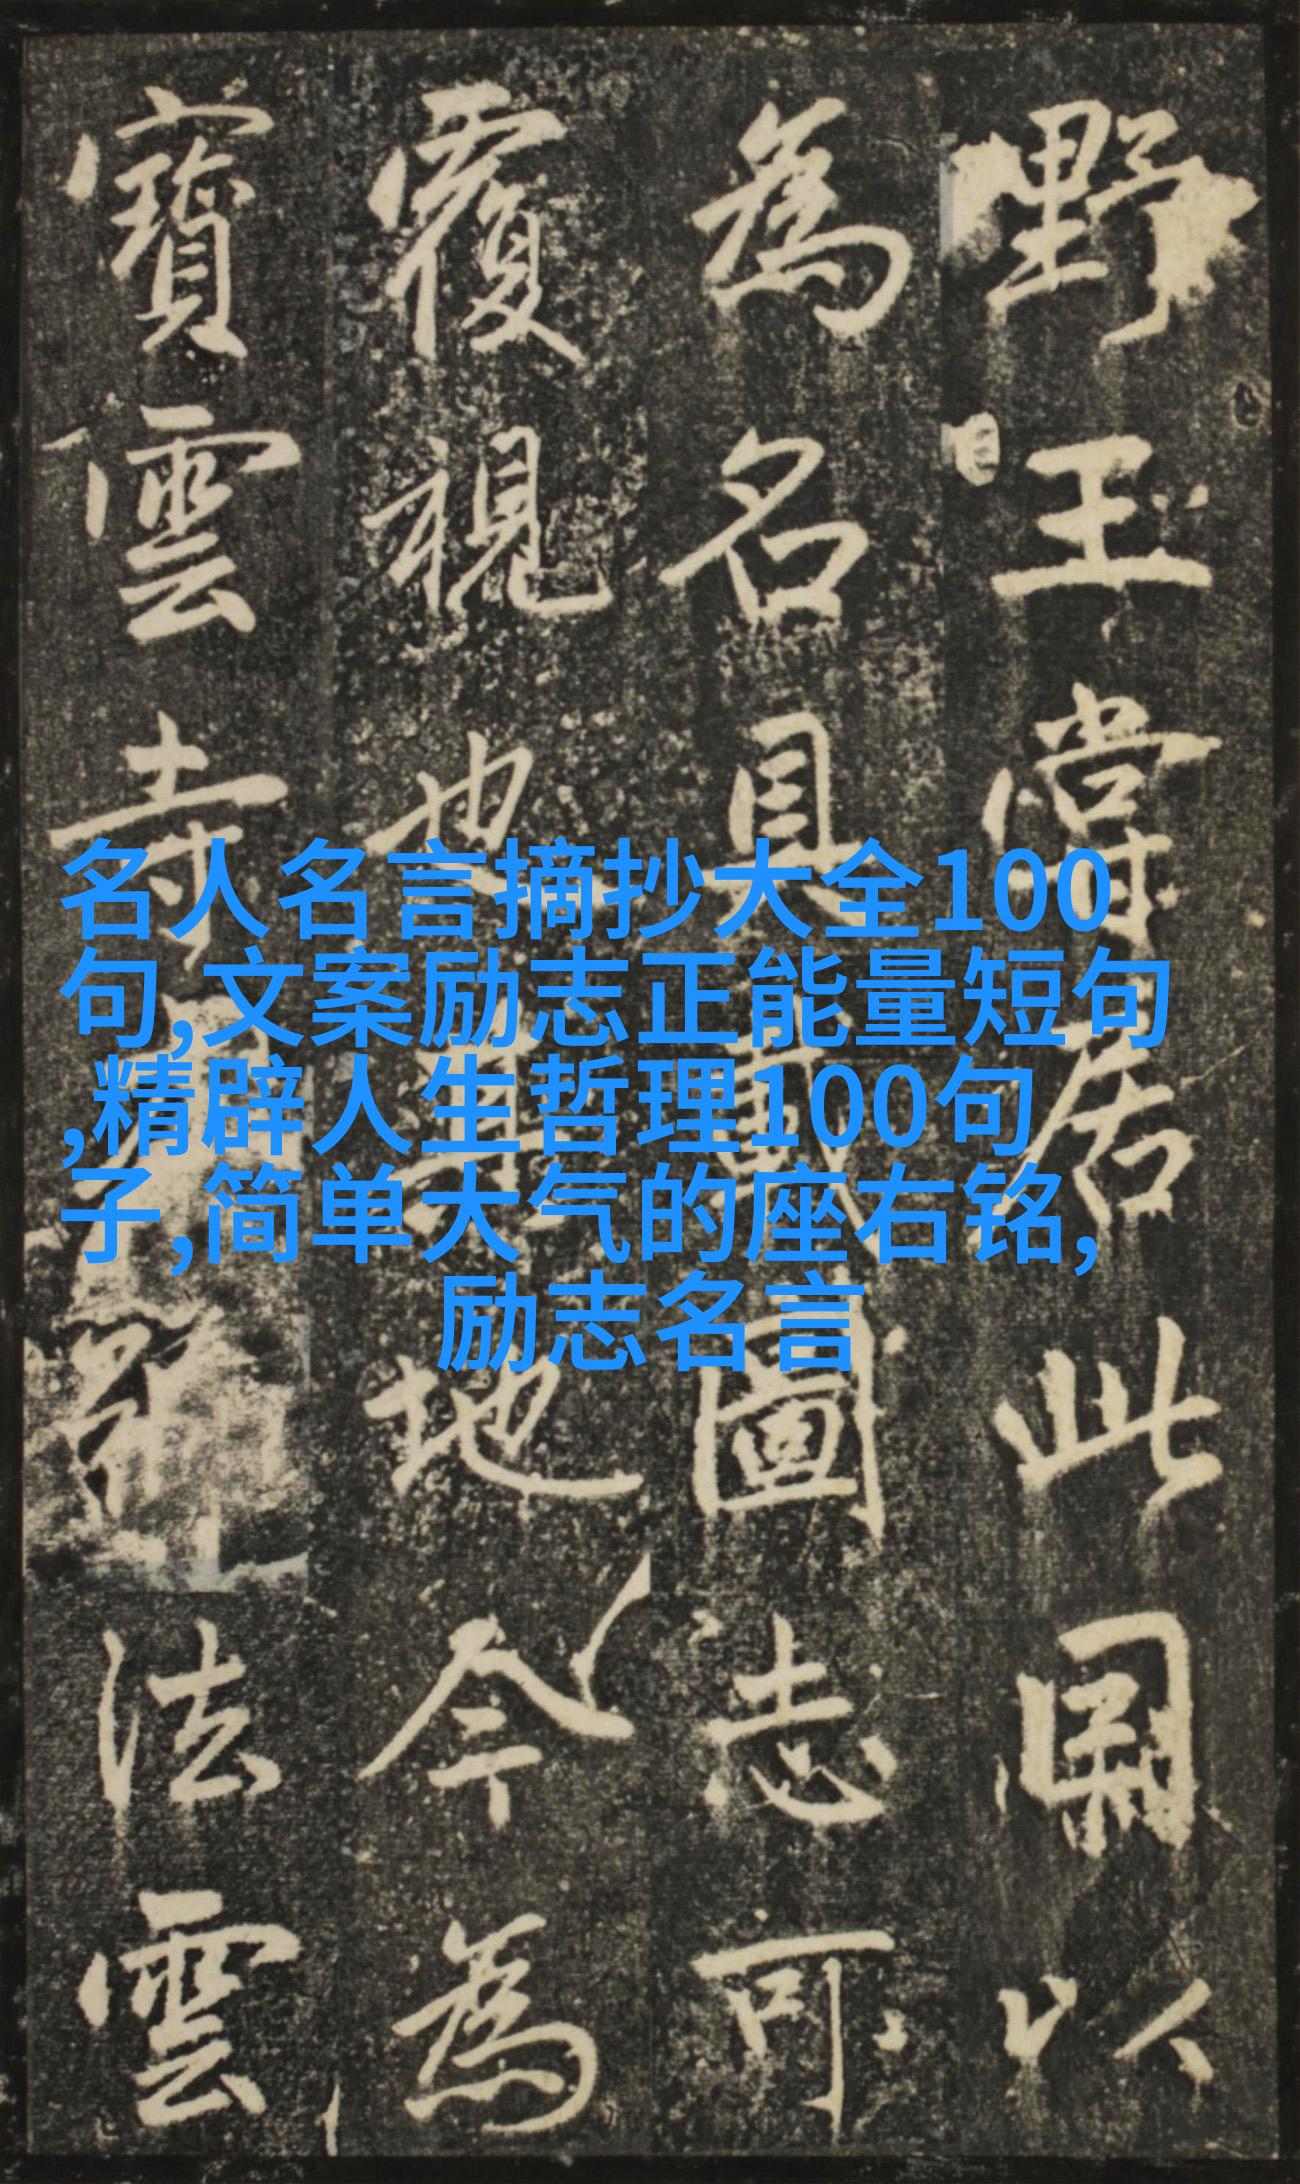 野王嘗居此因以
為名具載圖志可
覆視也其地今為
寶雲寺
法雲
名人名言摘抄大全100
句,文案励志正能量短句
,精辟人生哲理100句
子,简单大气的座右铭,
励志名言